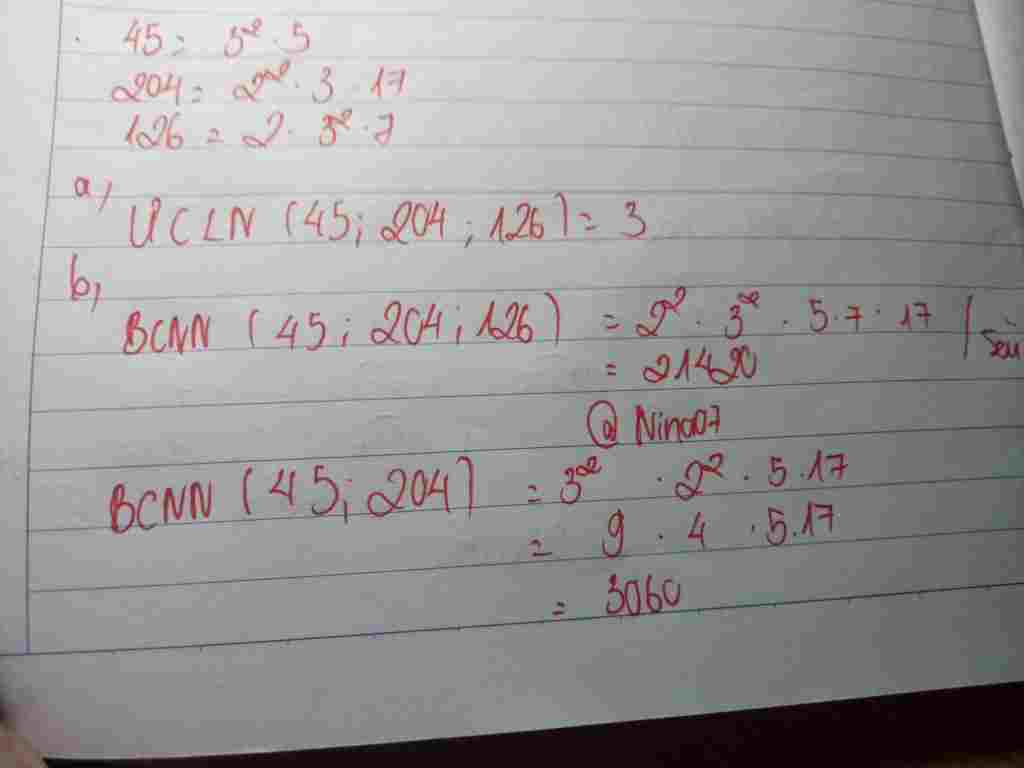 45 = 3² · 5
204 = 2² · 3 · 17
126 = 2 · 3² · 7
a,
ƯCLN (45; 204; 126) = 3
b,
BCNN (45; 204; 126) = 2² · 3² · 5 · 7 · 17 (
= 21420
@ Nino07
BCNN (45; 204) = 3² · 2² · 5 · 17
= 9 · 4 · 5 . 17
= 3060